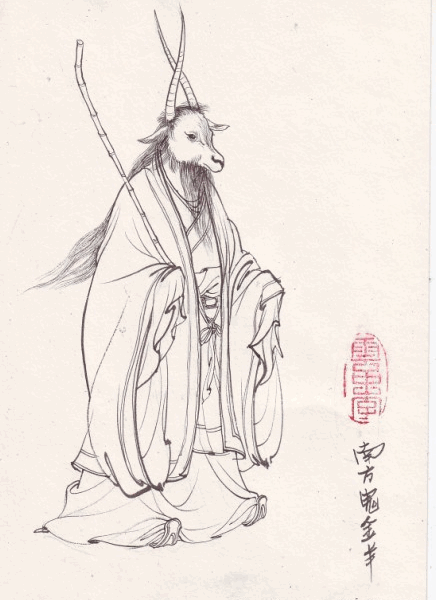 南方鬼金羊